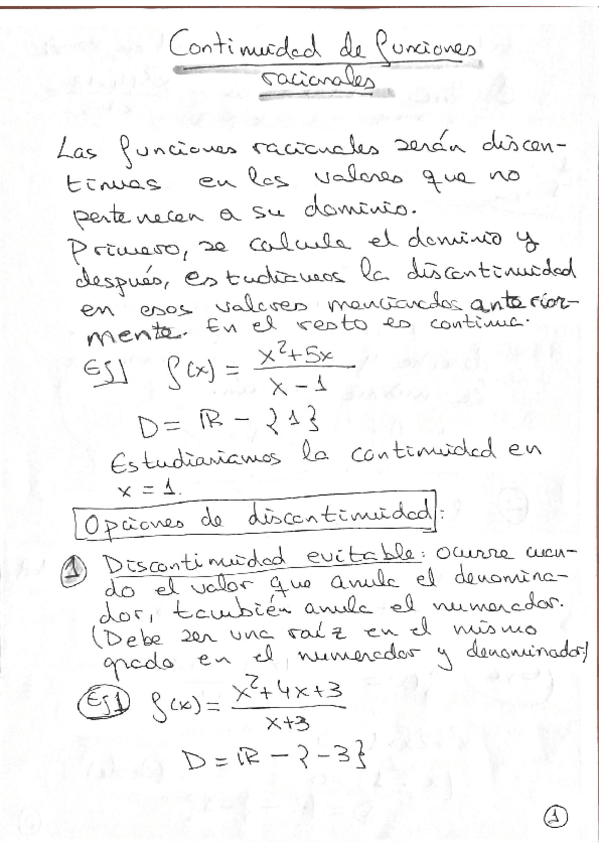 Continuidad de funciones
racionales
Las funciones racionales serán discon-
tinuas en los valores que no
pertenecen a su dominio.
Primero, se calcula el dominio y
después, estudiamos la discontinuidad
en esos valores mencionados anterior-
mente. En el resto es continua.
EJ] f(x) = (x²+5x)/(x-1)
D = ℝ - {1}
Estudiaríamos la continuidad en
x = 1.
Opciones de discontinuidad:
① Discontinuidad evitable: ocurre cuan-
do el valor que anula el denomina-
dor, también anula el numerador.
(Debe ser una raíz en el mismo
grado en el numerador y denominador)
EJ1 f(x) = (x²+4x+3)/(x+3)
D = ℝ - {-3}
①